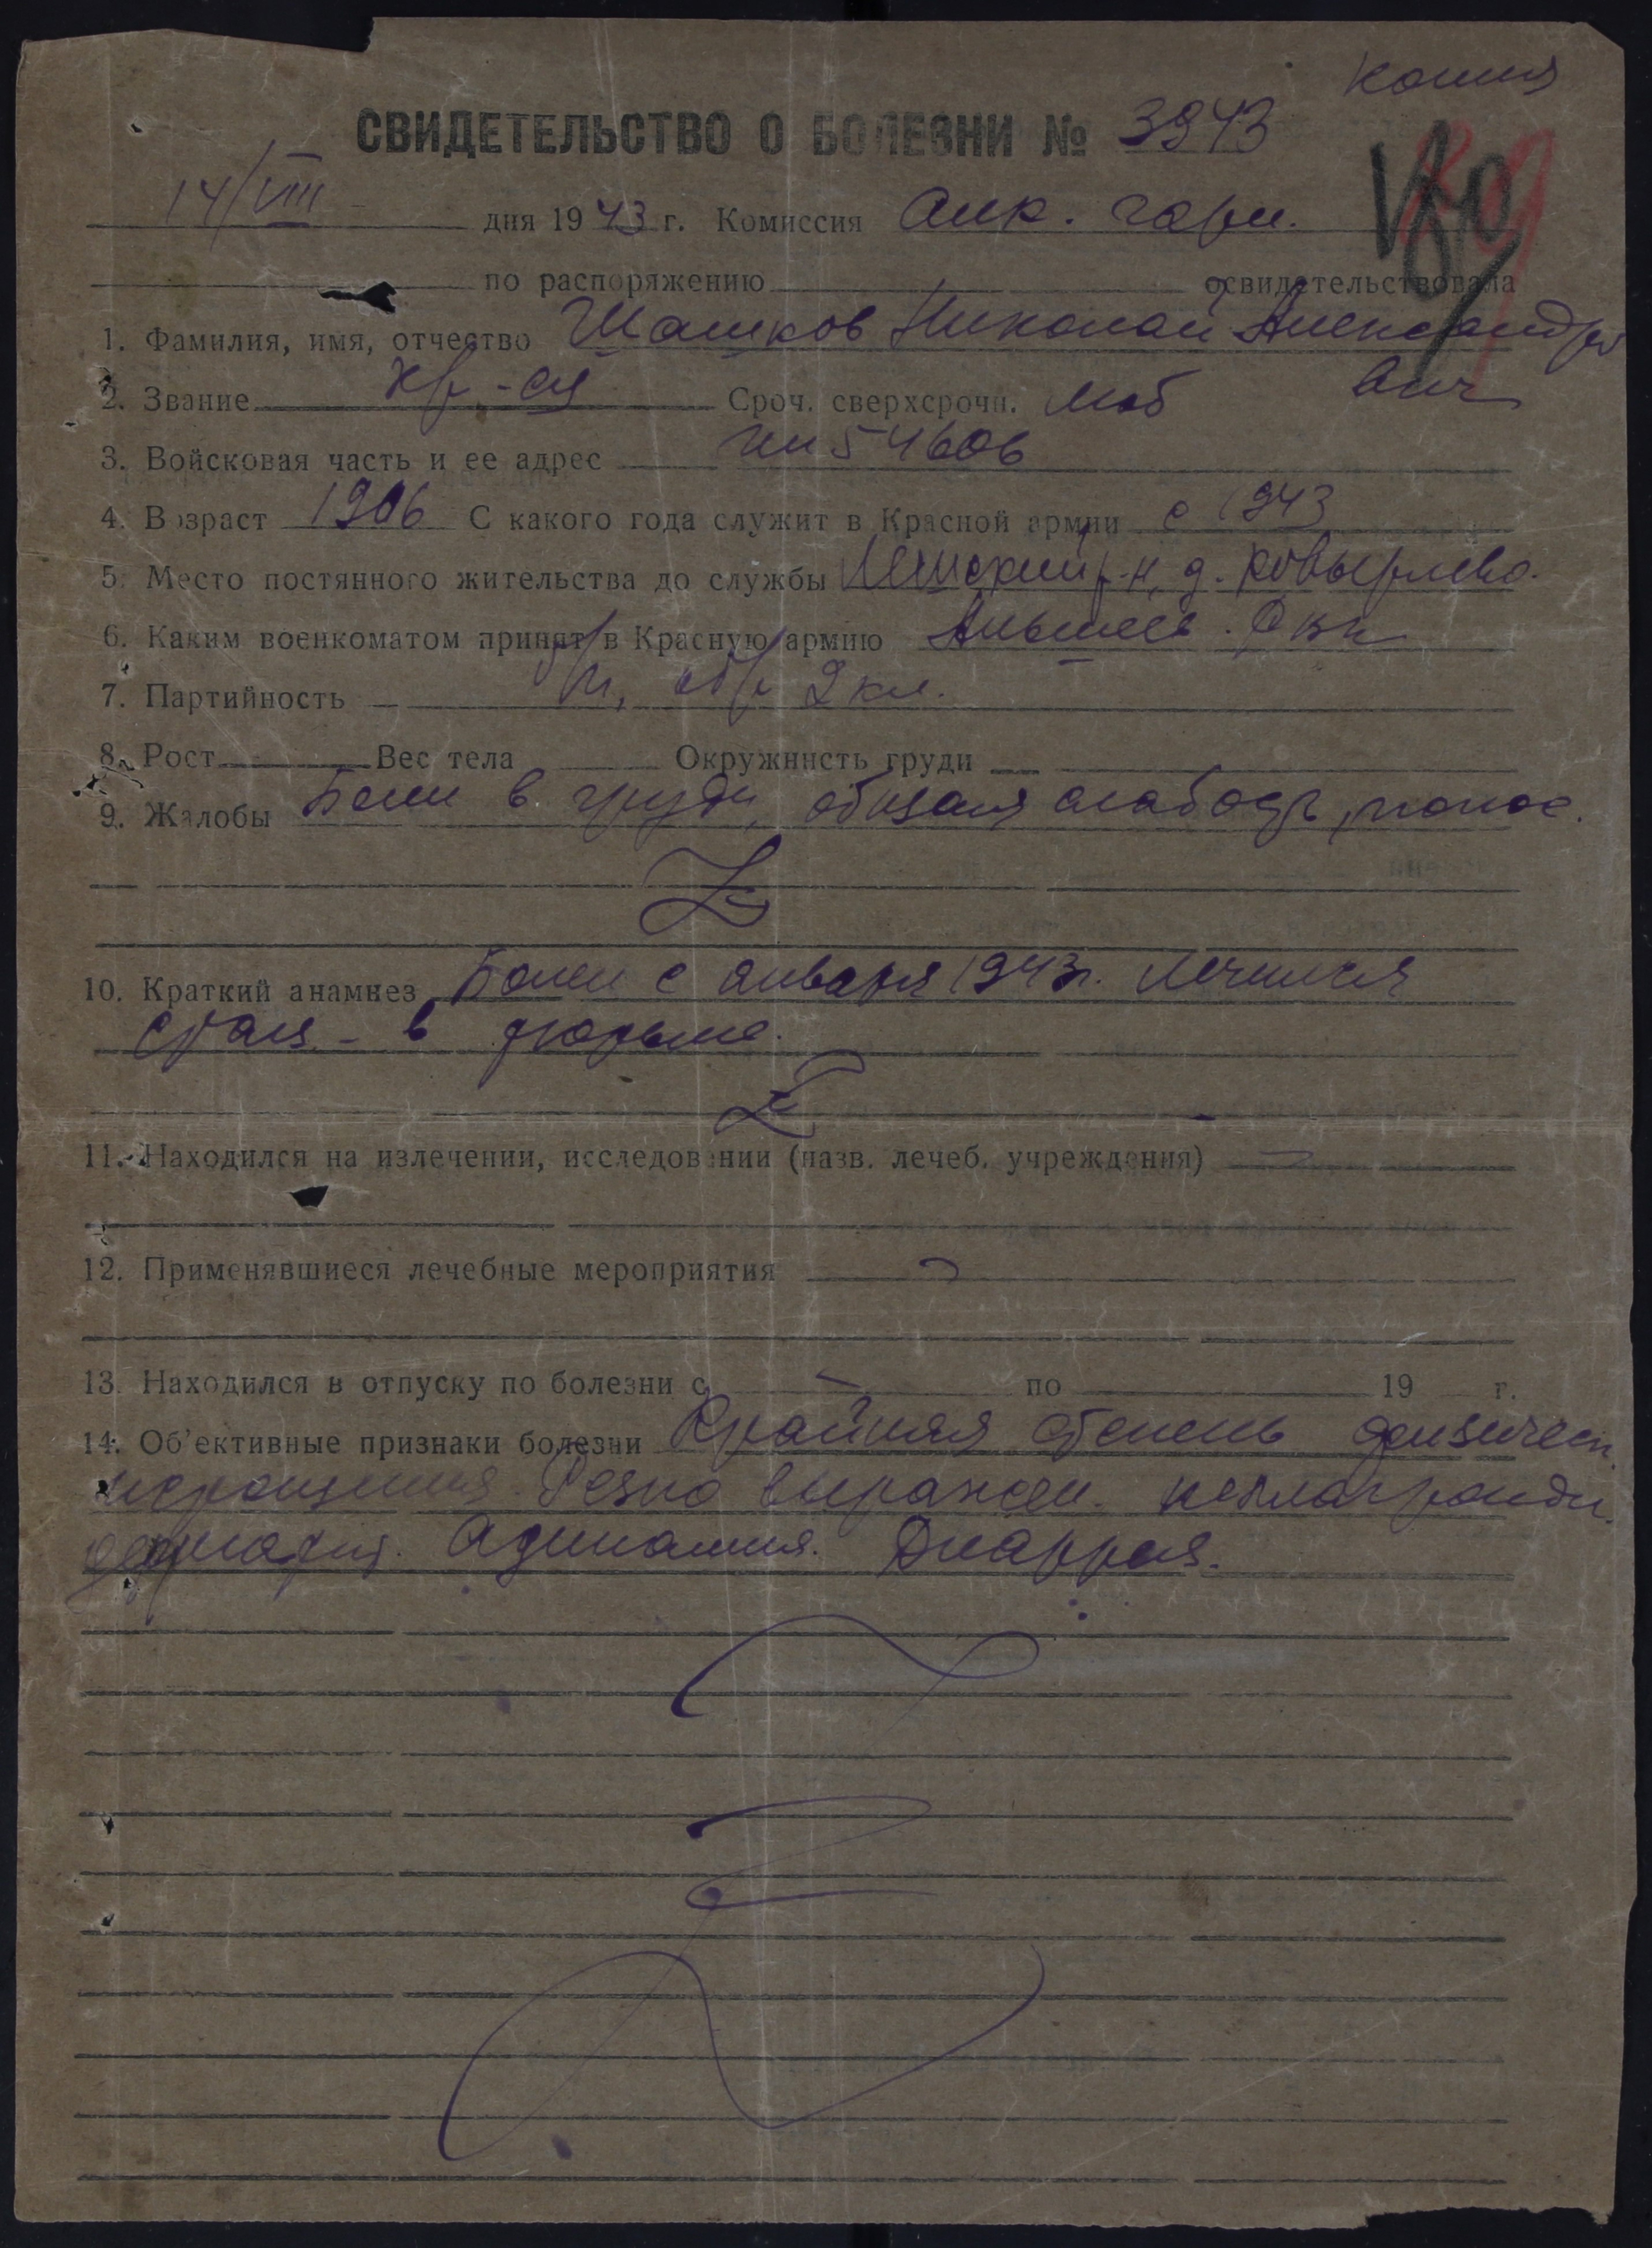 Копия
СВИДЕТЕЛЬСТВО О БОЛЕЗНИ № 3943
14/VIII дня 1943 г. Комиссия Алк. гарн.
по распоряжению освидетельствовала
1. Фамилия, имя, отчество Шашков Николай Александро
вич
2. Звание кр-ец Сроч. сверхсрочн. Моб
3. Войсковая часть и ее адрес пп 54606
4. Возраст 1906 С какого года служит в Красной армии с 1943
5. Место постянного жительства до службы р-н, д.
6. Каким военкоматом принят в Красную армию РВК
7. Партийность б/п, обр 2 кл.
8. Рост Вес тела Окружнисть груди
9. Жалобы Боли в груди, общая слабость, понос.
10. Краткий анамнез Болен с января 1943 г. Лечился
стац. - в тюрьме.
11. Находился на излечении, исследовании (назв. лечеб. учреждения)
12. Применявшиеся лечебные мероприятия
13. Находился в отпуску по болезни с по 19 г.
14. Об'ективные признаки болезни Крайняя степень физическ.
истощения. Резко выражен. пеллагроидн.
Адинамия. Диаррея.